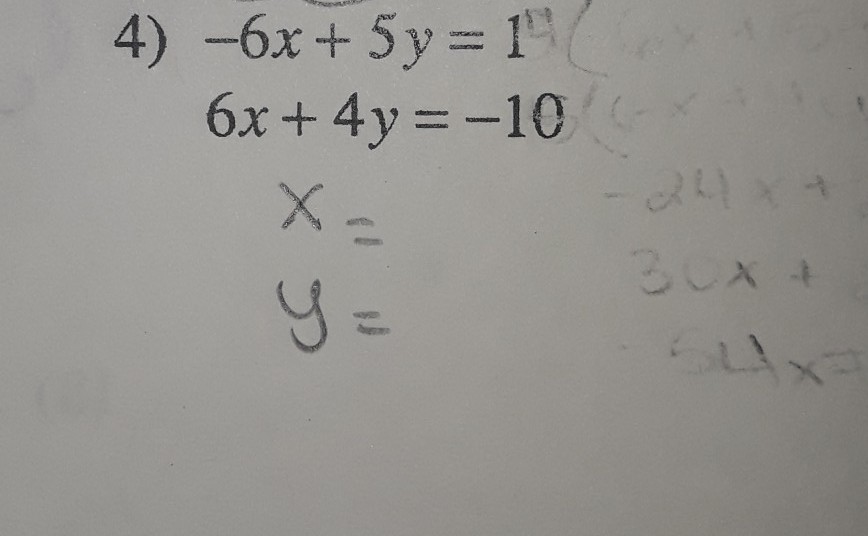 4) -6x + 5y = 1
6x + 4y = -10
x =
y =
-24x +
30x +
54x=